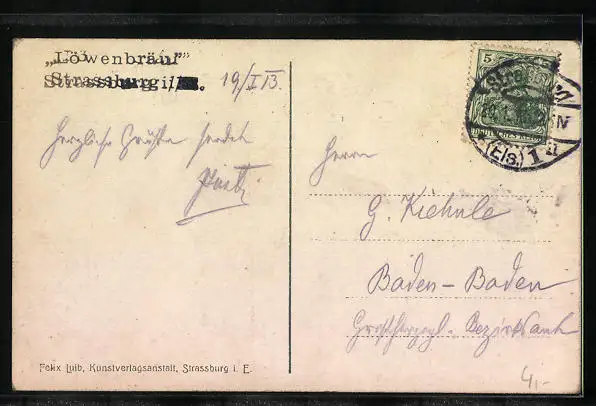 „Löwenbräu"
Strassburg i/
19/I 13.
Herzliche Grüße sendet
5
DEUTSCHES REICH
(Els.) 1
Herrn
G. Kiehnle
Baden-Baden
Großherzogl. Bezirksamt
Felix Luib, Kunstverlagsanstalt, Strassburg i. E.
4,-